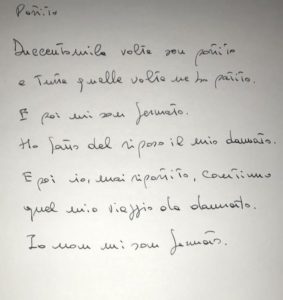 Partito
Duecentomila volte son partito
e Tutte quelle volte ne ho patito.
E poi mi son fermato.
Ho fatto del riposo il mio dannato.
E poi io, mai ripartito, continuo
quel mio viaggio da dannato.
Io non mi son fermato.